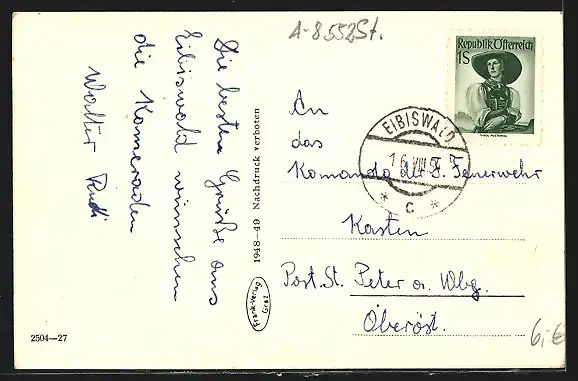 A-8552St.
Die besten Grüße aus
Eibiswald wünschen
die Komeraden
Walter Rudi
1948—49 Nachdruck verboten
Frank-Verlag
Graz
2504—27
Republik Österreich
1S
EIBISWALD
16.VIII.5
* C *
An
das
Komando der F. Feuerwehr
Kasten
Post. St. Peter a. Wbg.
Oberöst.
6,-€